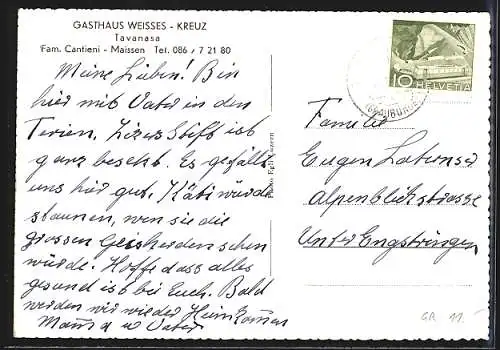 GASTHAUS WEISSES - KREUZ
Tavanasa
Fam. Cantieni - Maissen Tel. 086 / 7 21 80
Meine Lieben! Bin
hier mit Vater in den
Ferien. Stift ist
ganz besetzt. Es gefällt
uns hier gut. Käti würde
staunen, wen sie die
grossen Geisherden sehen
würde. Hoffe dass alles
gesund ist bei Euch. Bald
werden wir wieder Heim kommen
Mama u Vater
10 HELVETIA
(GRAUBÜNDEN)
Familie
Eugen Laternser
Alpenblickstrasse
Unter Engstringen
GR 11.